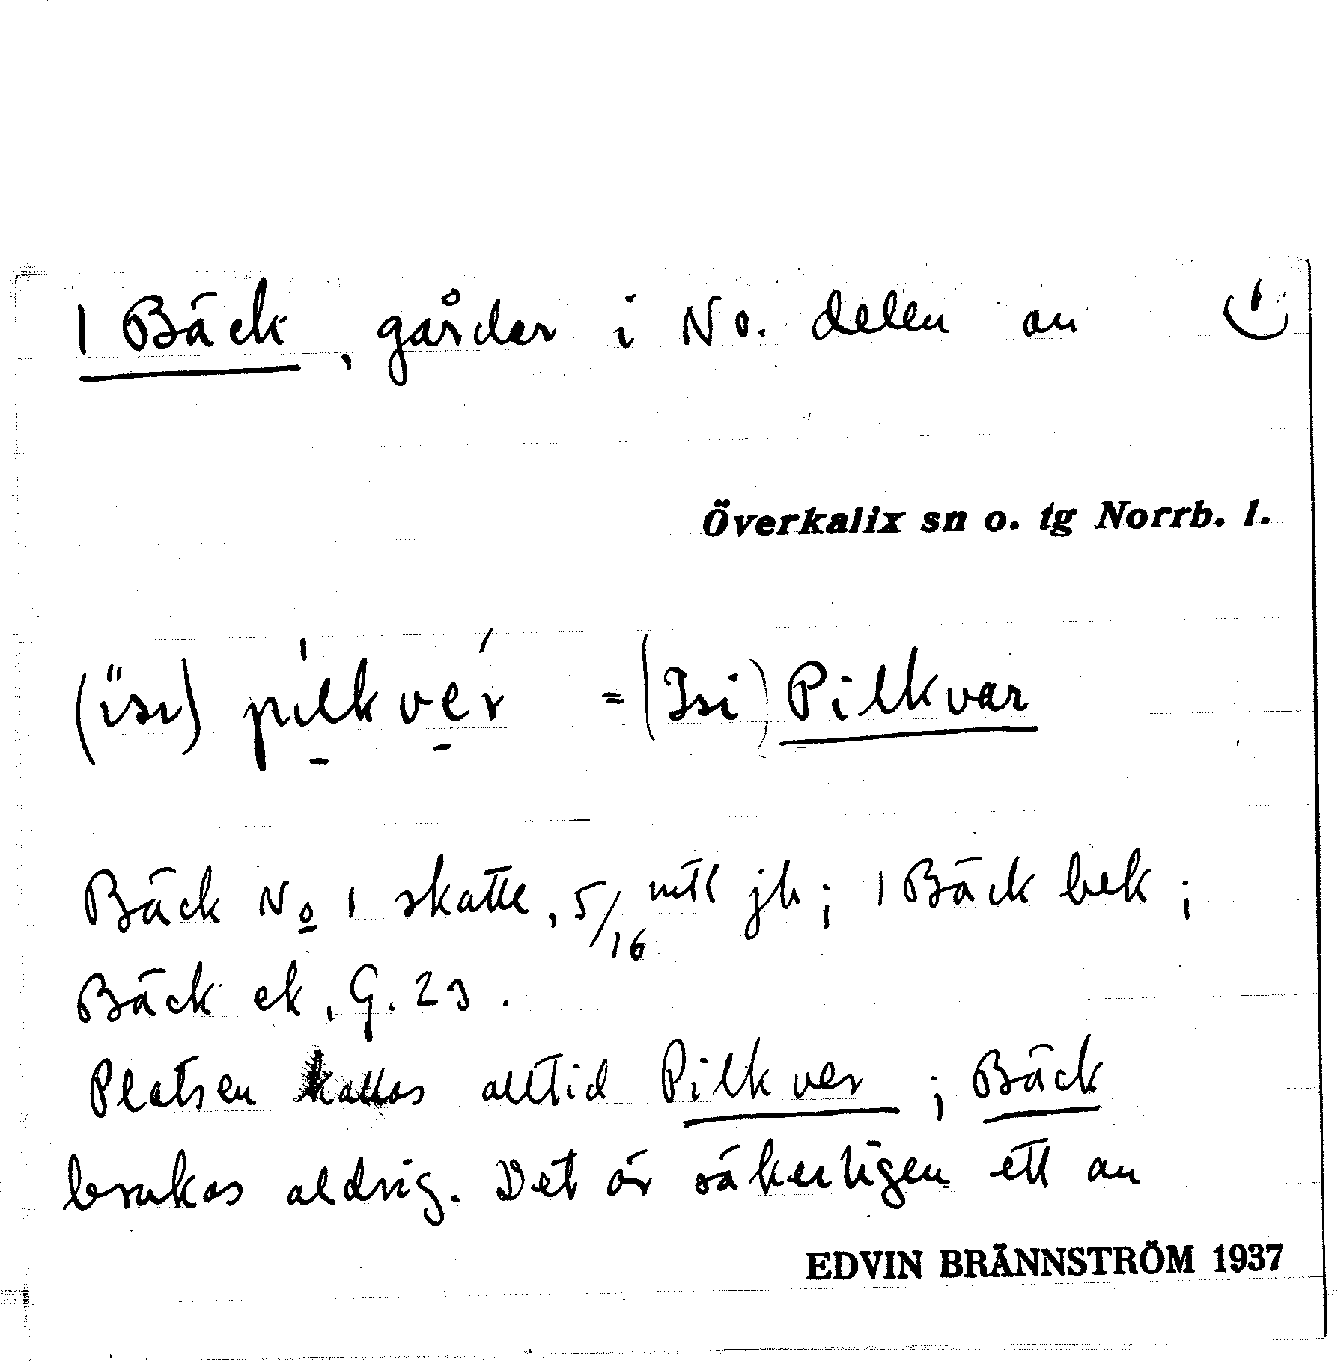 1 Bäck, gårdar i No. delen av
Överkalix sn o. tg Norrb. l.
(ɪsɪ) pilkver = (Isi) Pilkvar
Bäck No 1 skatte, 5/16 mtl jb; 1 Bäck bek;
Bäck ek, G. 23.
Platsen kallas alltid Pilkver; Bäck
brukas aldrig. Det är säkerligen ett av
EDVIN BRÄNNSTRÖM 1937